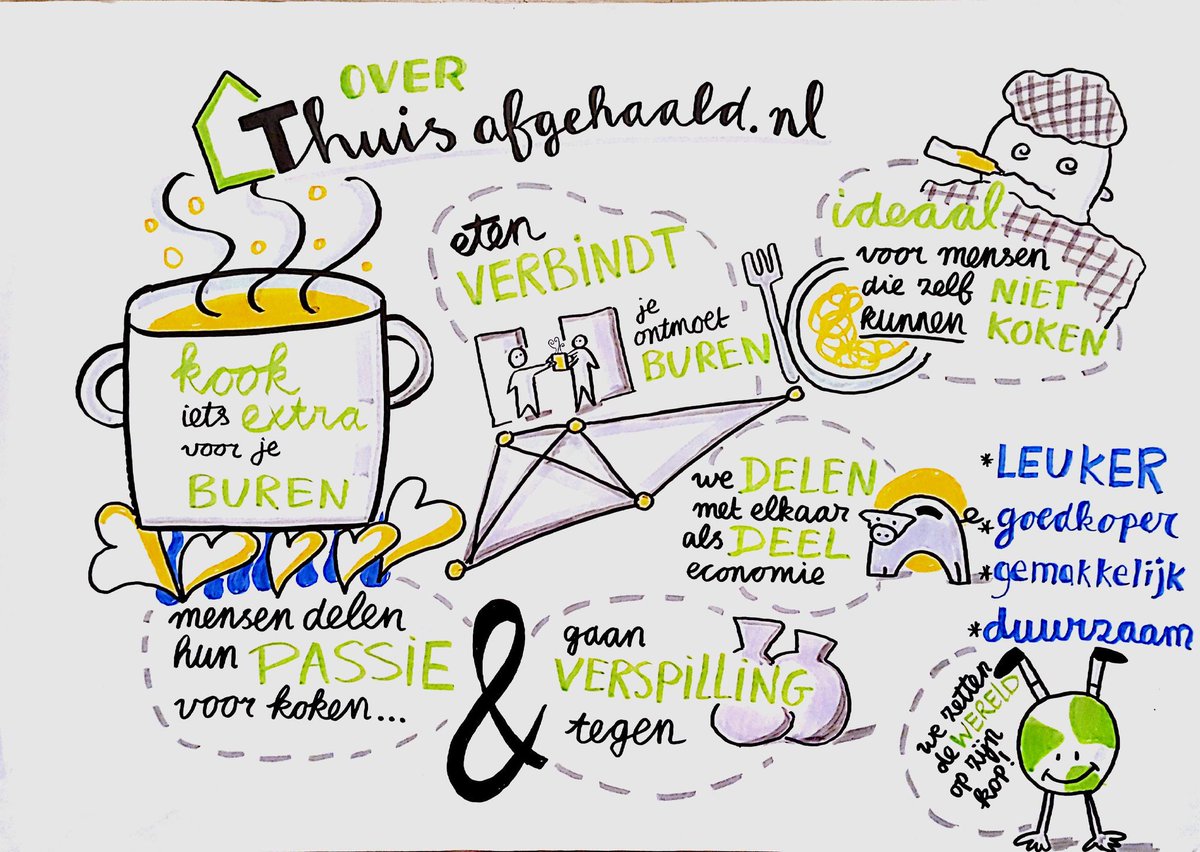 OVER
Thuisafgehaald.nl
kook
iets extra
voor je
BUREN
eten
VERBINDT
je
ontmoet
BUREN
ideaal
voor mensen
die zelf
kunnen
NIET
KOKEN
we DELEN
met elkaar
als DEEL
economie
*LEUKER
*goedkoper
*gemakkelijk
*duurzaam
mensen delen
hun PASSIE
voor koken...
&
gaan
VERSPILLING
tegen
we zetten
de WERELD
op zijn
kop!